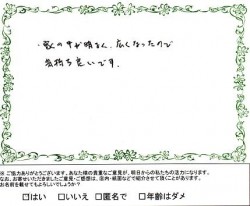 ・家の中が明るく、広くなったので
気持ち良いです。
※ご協力ありがとうございます。あなた様の貴重なご意見が、明日からの私たちの活力になります。
なお、お寄せいただきましたご意見・ご感想は、店内・紙面などで紹介させて頂くことがあります。
お名前を載せてもよろしいでしょうか?
□はい □いいえ □匿名で □年齢はダメ